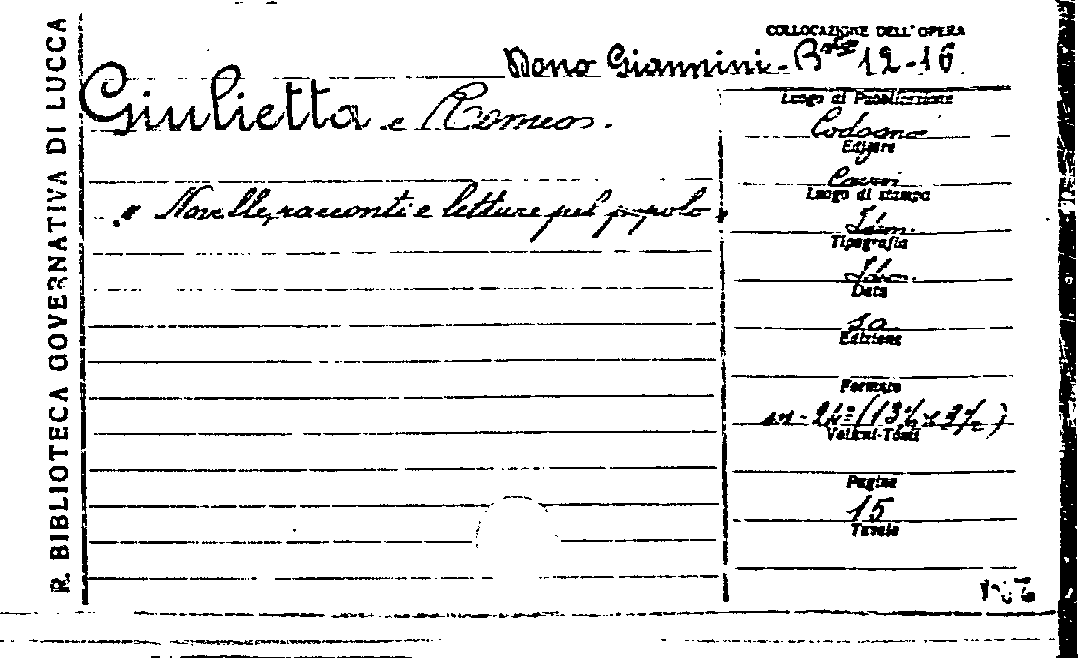 R. BIBLIOTECA GOVERNATIVA DI LUCCA
COLLOCAZIONE DELL'OPERA
Dono Giannini - B 12-16
Giulietta e Romeo.
" Novelle, racconti e letture pel popolo "
Luogo di Pubblicazione
Codogno
Editore
Cairo
Luogo di stampa
Idem.
Tipografia
Id.
Data
s.a.
Edizione
Formato
in-24º (13
Volumi-Tomi
Pagine
15
Tavole